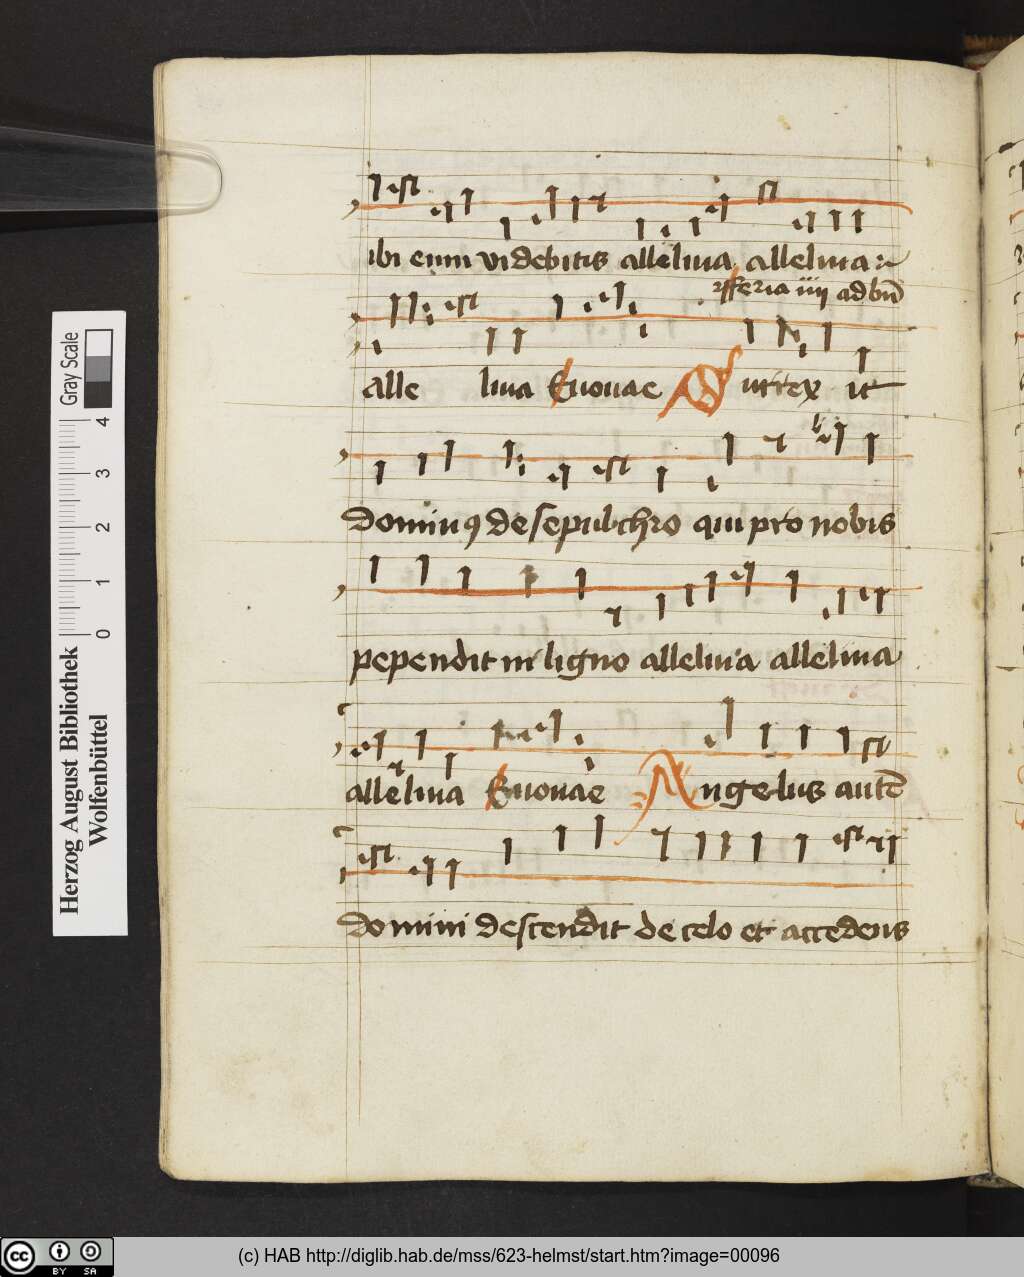 ibi eum videbitis alleluia alleluia
feria iiij ad bñ
alle luia Euouae Surrex it
dominꝰ de sepulchro qui pro nobis
pependit in ligno alleluia alleluia
alleluia Euouae Angelus autē
domini descendit de celo et accedens
Gray Scale
0 1 2 3 4
Herzog August Bibliothek
Wolfenbüttel
cc BY SA
(c) HAB http://diglib.hab.de/mss/623-helmst/start.htm?image=00096